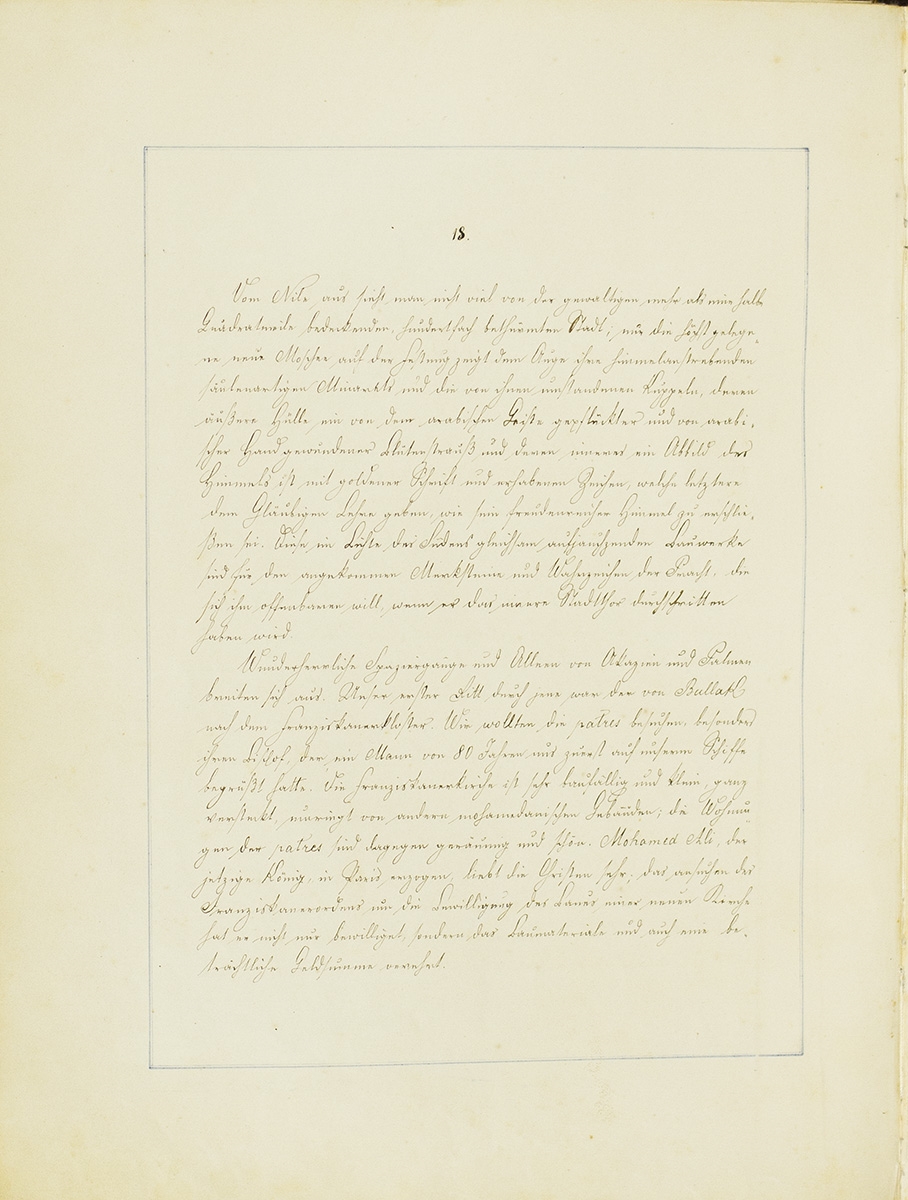 18.
Vom Nile aus sieht man nicht viel von der gewaltigen mehr als eine halbe
Quadratmeile bedeckenden, hundertfach bethürmten Stadt; nur die höchst gelege-
ne neue Moschee auf der Festung zeigt dem Auge ihre himmelanstrebenden
säulenartigen Minarehts und die von ihnen umstandenen Kuppeln, deren
äußere Hülle ein von dem arabischen Geiste gepflückter und von arabi-
scher Hand gewundener Blütenstrauß und deren inneres ein Abbild des
Himmels ist mit goldener Schrift und erhabenen Zeichen, welche letztere
dem Gläubigen Lehre geben, wie sein freudenreicher Himmel zu erschlie-
ßen sei. Diese im Lichte des Südens gleichsam aufjauchzenden Bauwerke
sind für den angekommen Merksteine und Wahrzeichen der Pracht, die
sich ihm offenbaren will, wenn er das innere Stadtthor durchschritten
haben wird.
Wunderherrliche Spaziergänge und Alleen von Akazien und Palmen
breiten sich aus. Unser erster Ritt durch jene war der von Bullak
nach dem Franziskanerkloster. Wir wollten die patres besuchen, besonders
ihren Bischof, der, ein Mann von 80 Jahren uns zuerst auf unserm Schiffe
begrüßt hatte. Die Franziskanerkirche ist sehr baufällig und klein, ganz
versteckt, umringt von andern mohamedanischen Gebäuden; die Wohnun
gen der patres sind dagegen geräumig und schön. Mohamed Ali, der
jetzige König, in Paris erzogen, liebt die Christen sehr; das ansuchen des
Franziskanerordens um die Bewilligung des Baues einer neuen Kirche
hat er nicht nur bewilliget, sondern das Baumateriale und auch eine be-
trächtliche Geldsumme verehrt.